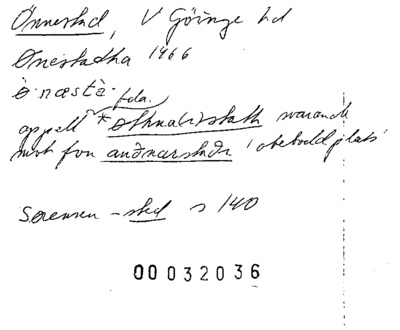 Önnestad, V Göinge hd
Ønestadha 1466
ö·næstà·
fda.
appell *øthnakistath svarande
mot fvn auðnarstaðr 'obebodd plats'
Sørensen -sted s 140
00032036